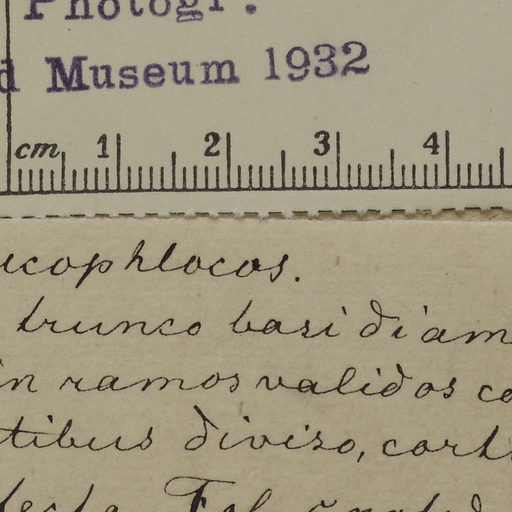 Photogr.
d Museum 1932
cm 1 2 3 4
ucophlocos.
trunco basi diam
in ramos validos co
tibus diviso, cort
Fol.